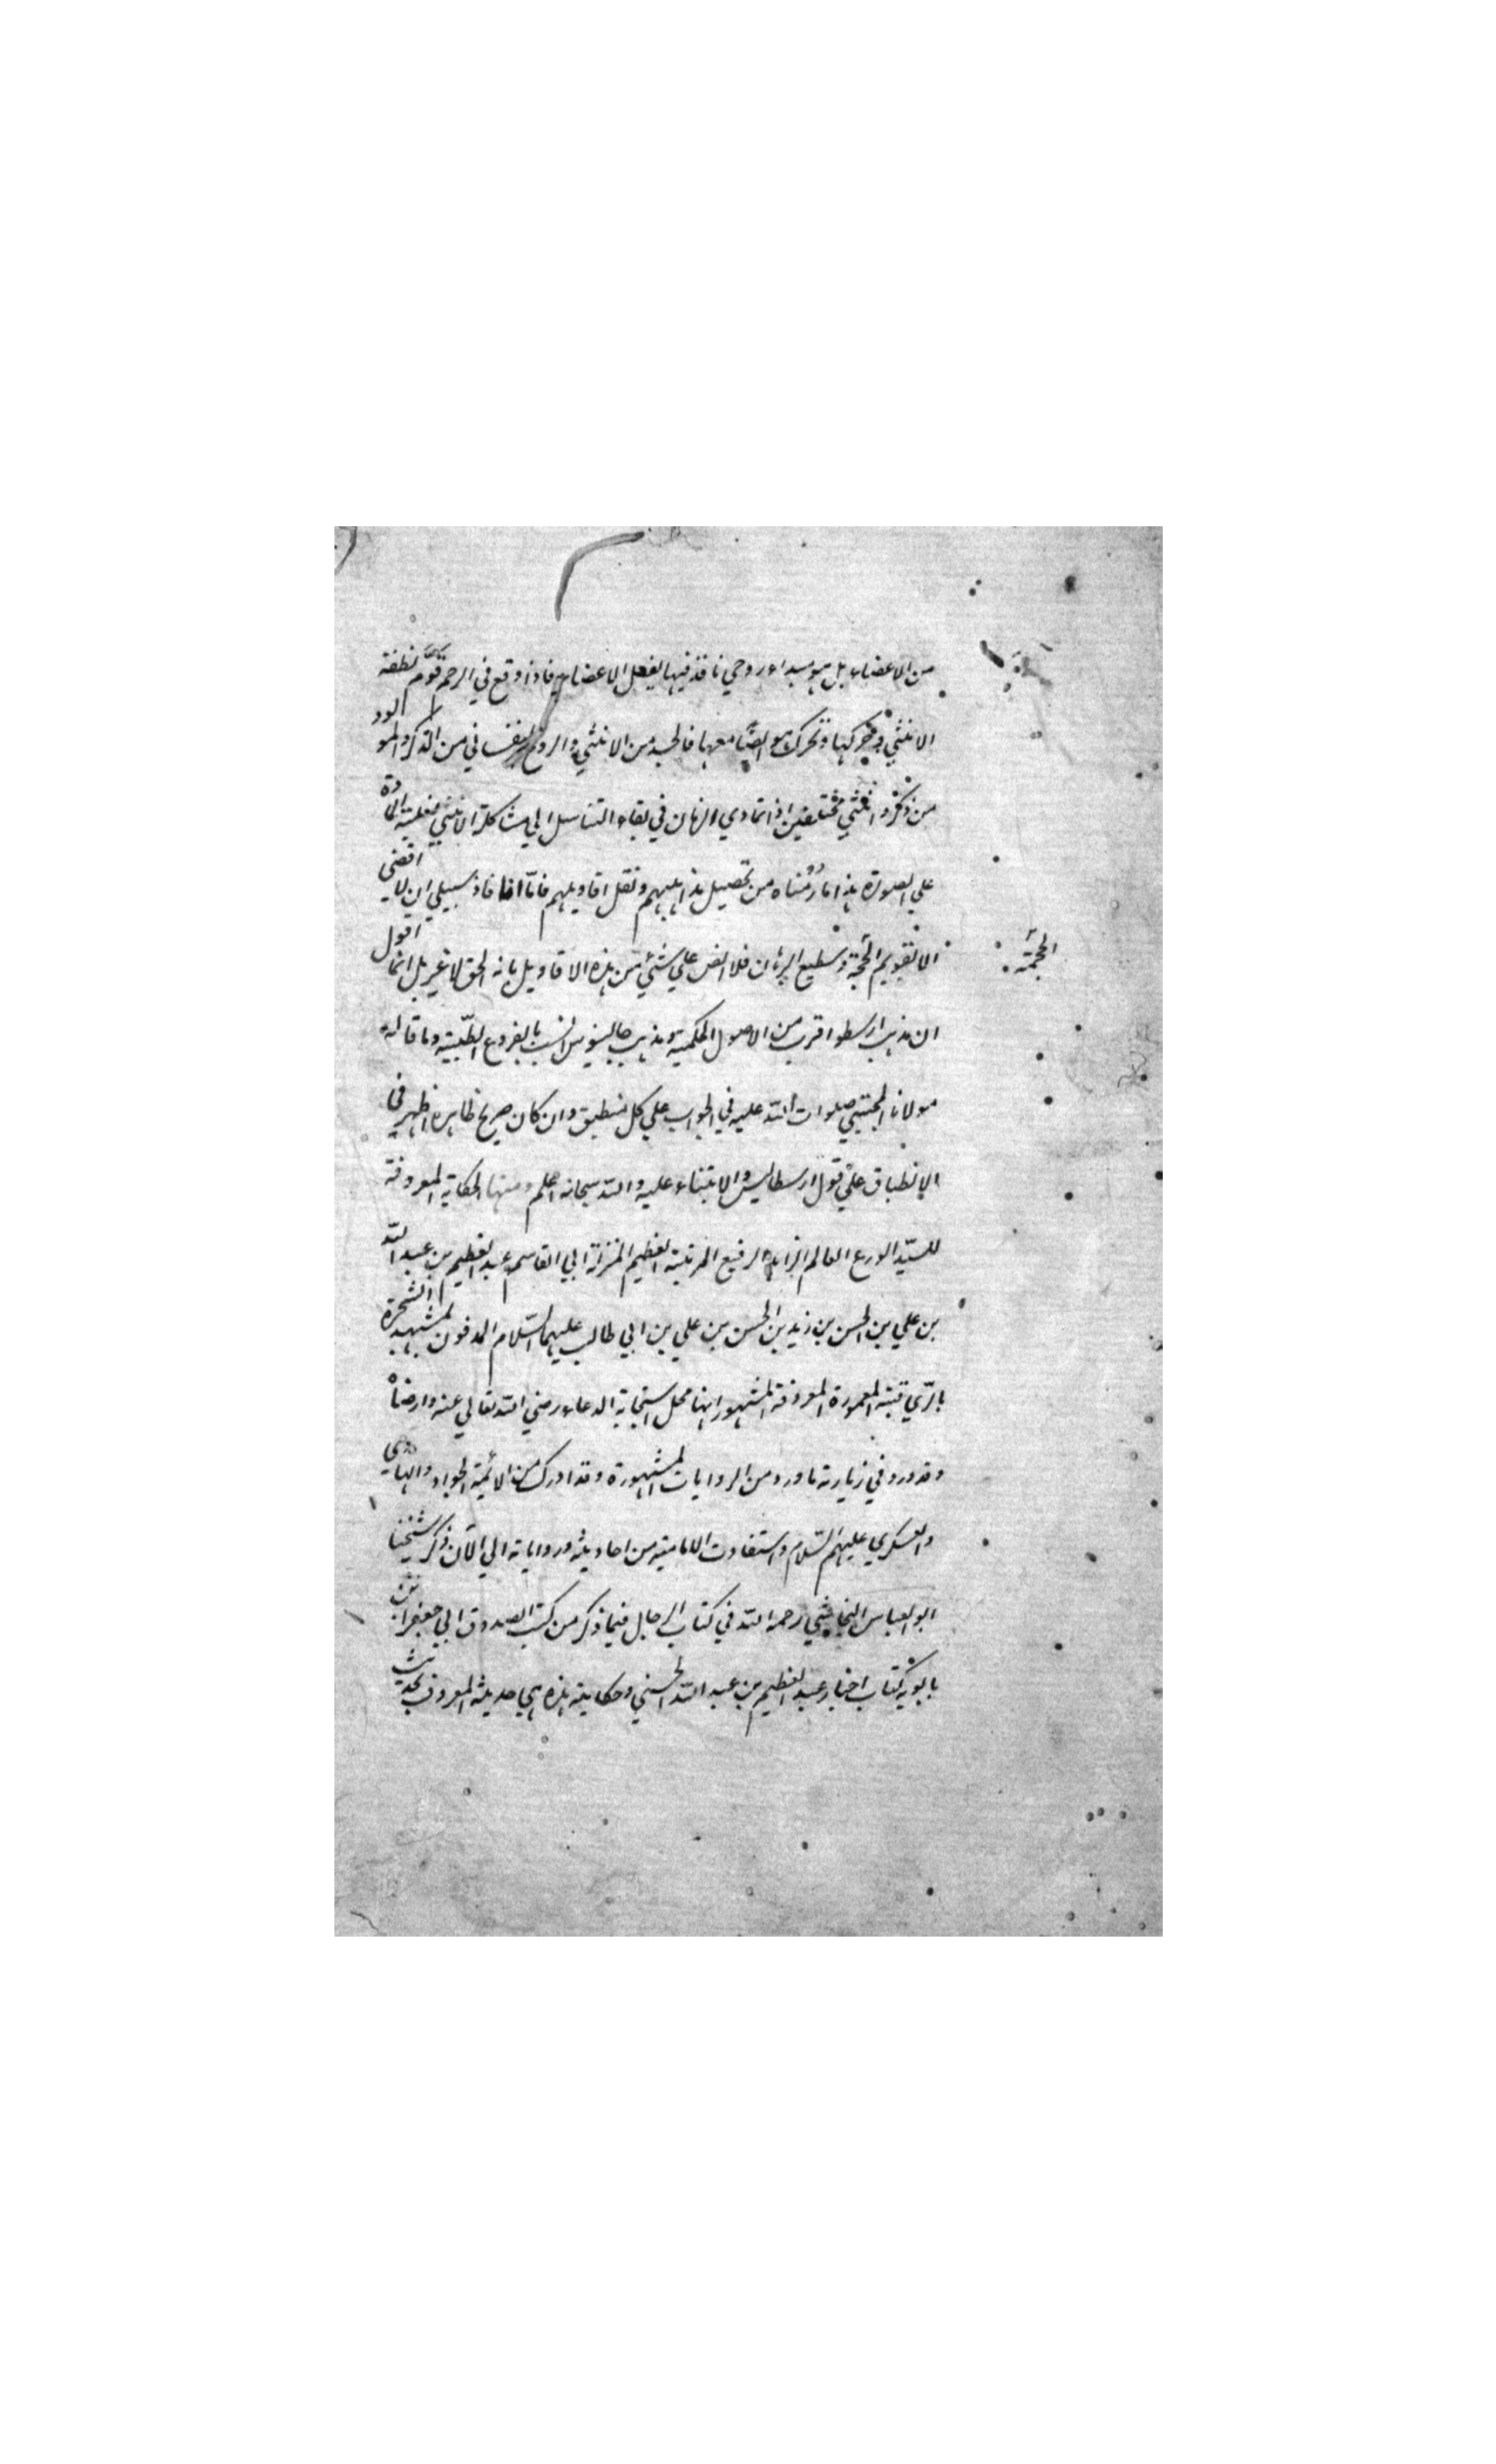 من الاعضاء بل هو مبداء روحي نافذ فيها يفعل الاعضاء فاذا وقع في الرحم قوّم نطفة
الانثي وحركها وتحرك هو ايضا معها فالجسد من الانثي والروح النفساني من الذكر والمولود
من ذكر وانثي مختلفين اذا تمادي الزمان في بقاء التناسل الي مشاكلة الانثي لغلبة المادة
علي الصورة هذا ما رُمناه من تحصيل مذاهبهم ونقل اقاويلهم فامّا انا فاذ سبيلي ان لا اقضي
الا بقويم الحجة وسطيع البرهان فلا انص علي شئ من هذه الاقاويل بانه الحق لا غير بل انما اقول
الحجة
ان مذهب ارسطو اقرب من الاصول الحكمية ومذهب جالينوس انسب بالفروع الطّبية وما قاله
مولانا المجتبي صلوات اللّه عليه في الجواب علي كل منطبق وان كان صريح ظاهره اظهر في
الانطباق علي قول ارسطاليس والابتناء عليه واللّه سبحانه اعلم ومنها الحكاية المعروفة
للسيّد الورع العالم الزاهد الرفيع المرتبة العظيم المنزلة ابي القاسم عبد العظيم بن عبد اللّه
بن علي بن الحسن بن زيد بن الحسن بن علي بن ابي طالب عليهما السّلام المدفون بمشهد الشجرة
بالرّي قبته المعمورة المعروفة المشهور انها محل استجابة الدعاء رضي اللّه تعالي عنه وارضاه
وقد ورد في زيارته ما ورد من الروايات المشهورة وقد ادرك من الائمة الجواد والهادي
والعسكري عليهم السّلام واستفادت الامامية من احاديثه ورواياته الي الآن ذكر شيخنا
ابو العباس النجاشي رحمه اللّه في كتاب الرجال فيما ذكر من كتب الصدوق ابي جعفر ابن
بابويه كتاب اخبار عبد العظيم بن عبد اللّه الحسني وحكايته هذه هي حديثه المعروف بحديث